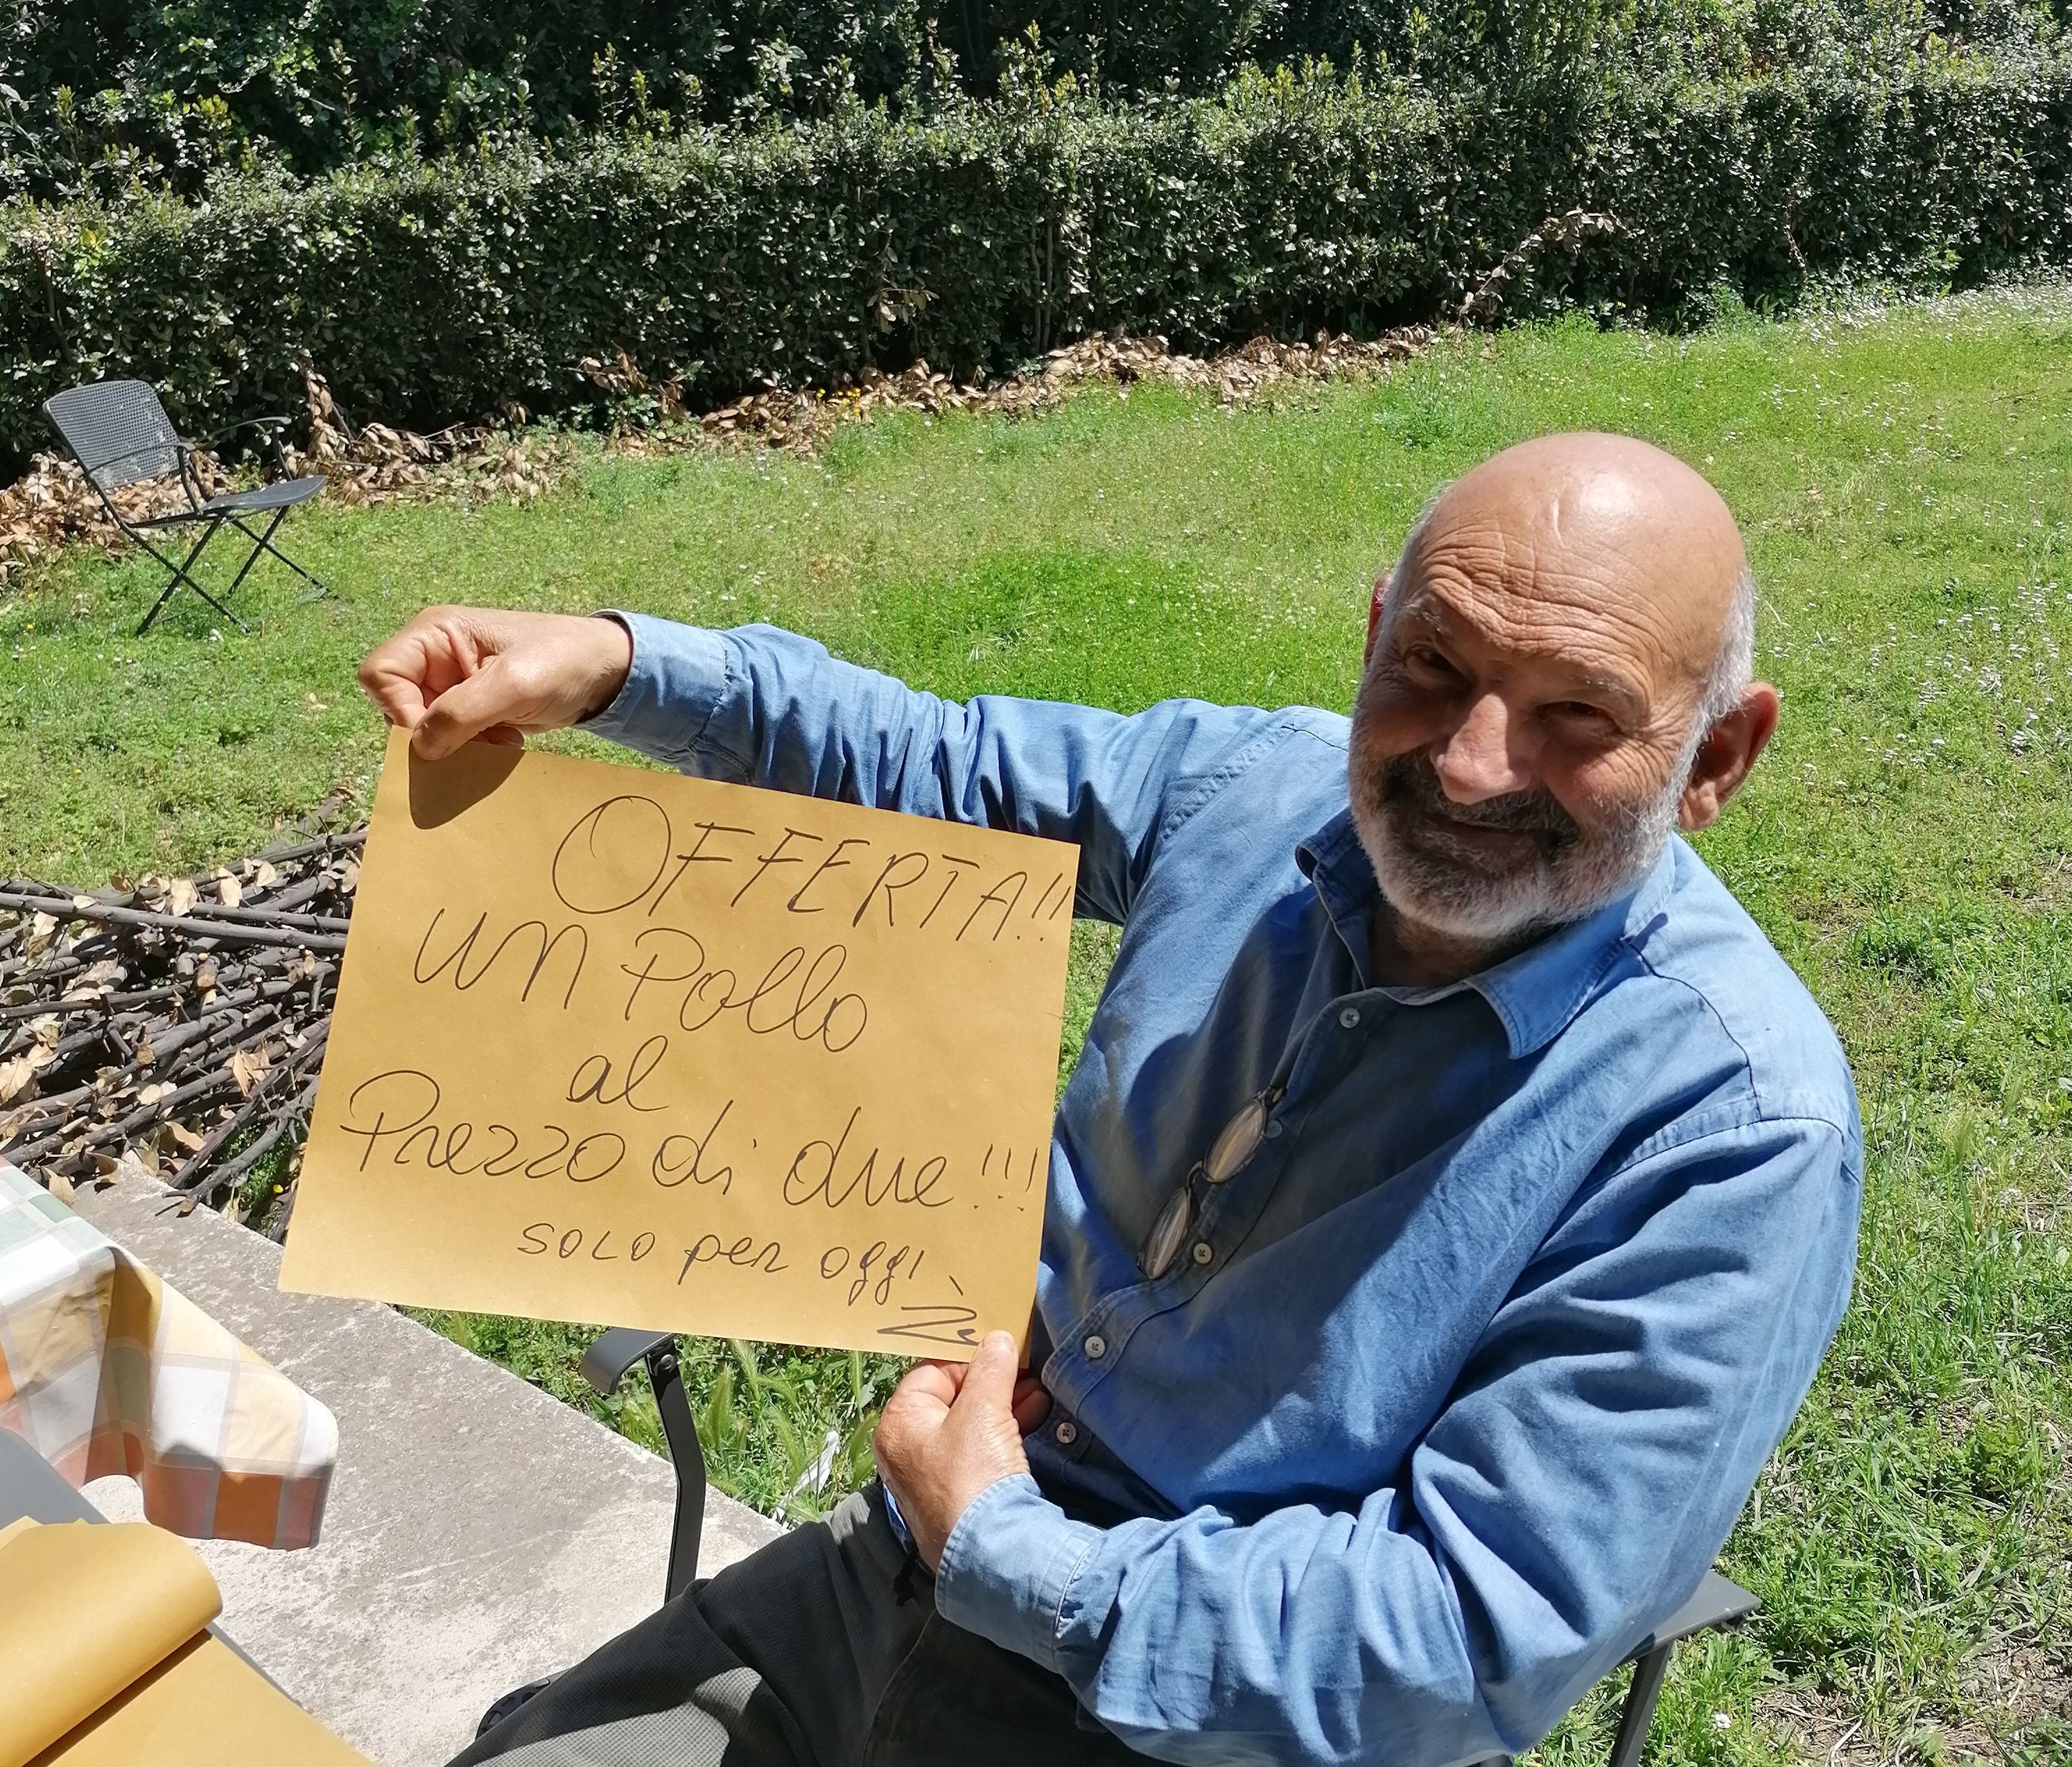 OFFERTA!!
un Pollo
al
Prezzo di due!!!
solo per oggi